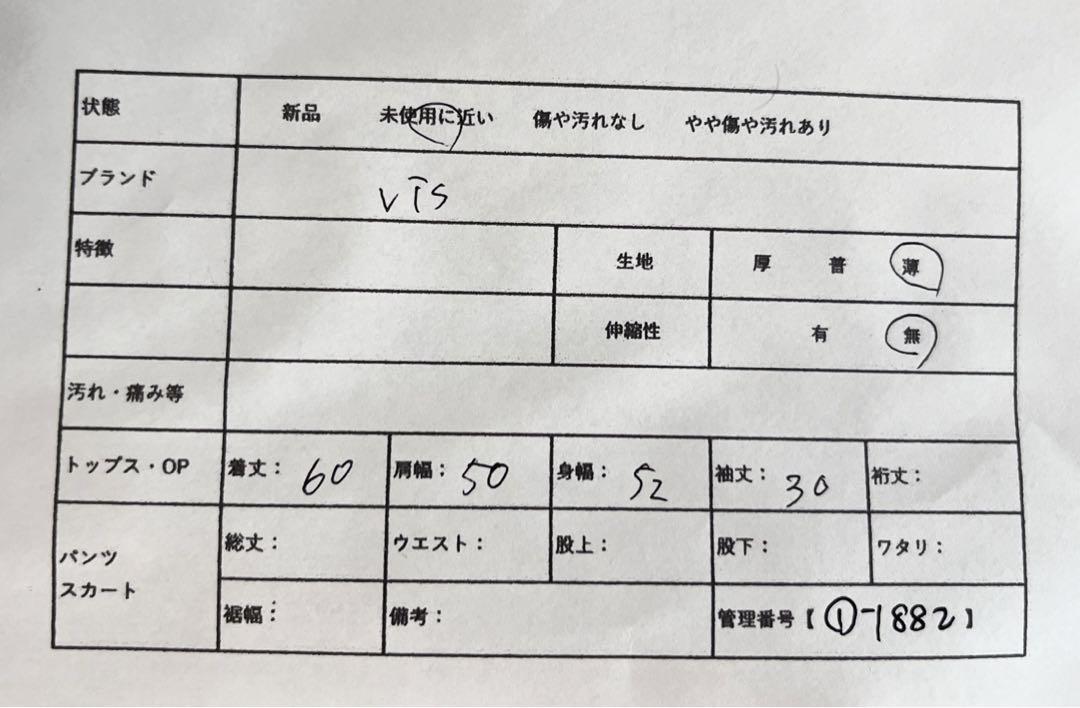 状態 新品 未使用に近い 傷や汚れなし やや傷や汚れあり
ブランド VIS
特徴 生地 厚 普 薄
伸縮性 有 無
汚れ・痛み等
トップス・OP 着丈: 60 肩幅: 50 身幅: 52 袖丈: 30 裄丈:
パンツ
スカート
総丈: ウエスト: 股上: 股下: ワタリ:
裾幅: 備考: 管理番号【①-1882】